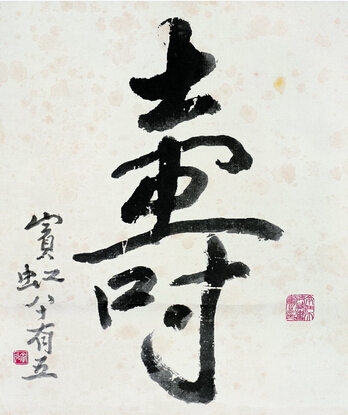 壽
賓虹八十有五